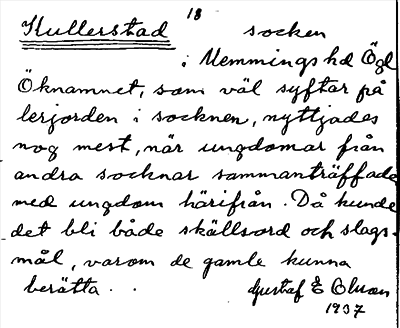 18
Kullerstad socken
i Memmings hd Ögl
Öknamnet, som väl syftar på
lerjorden i socknen, nyttjades
nog mest, när ungdomar från
andra socknar sammanträffade
med ungdom härifrån. Då kunde
det bli både skällsord och slags-
mål, varom de gamle kunna
berätta..
Gustaf E Olsson
1937